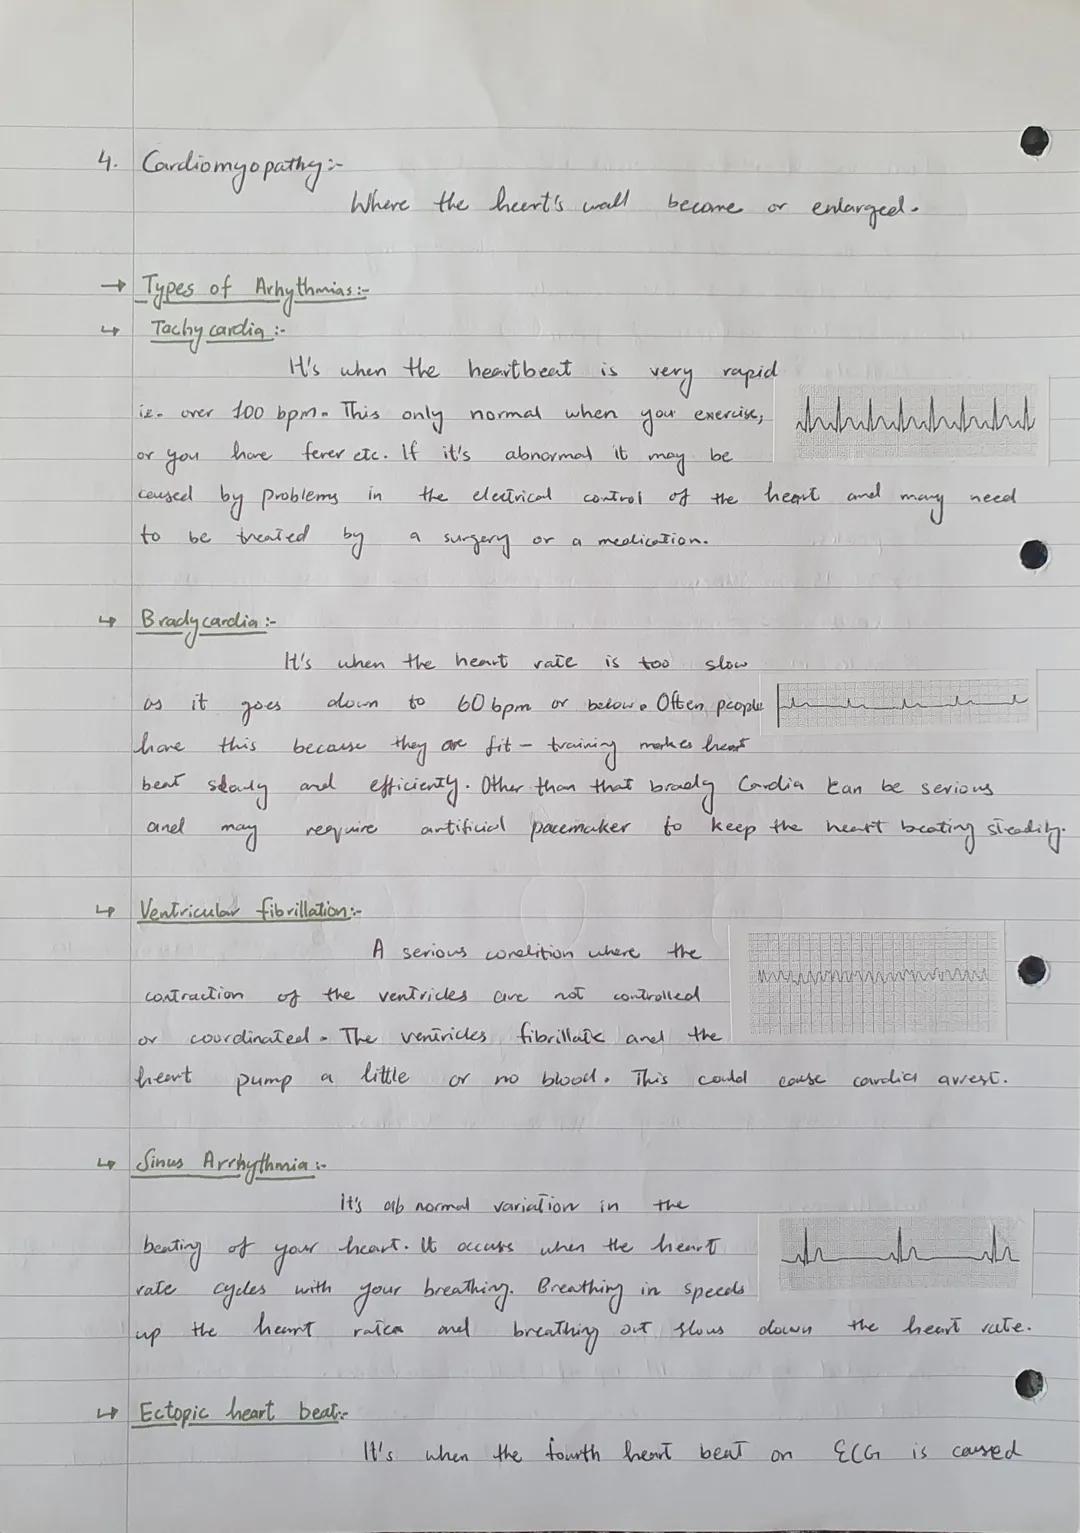 4. Cardiomyopathy:-
Where the heart's wall become or enlarged.
→ Types of Arhythmias:-
↳ Tachycardia :-
It's when the heartbeat is very rapid
i.e. over 100 bpm. This only normal when you exercise,
or you have fever etc. If it's abnormal it may be
caused by problems in the electrical control of the heart and may need
to be treated by a surgery or a medication.
↳ Bradycardia :-
It's when the heart rate is too slow
as it goes down to 60 bpm or below. Often people
have this because they are fit - training makes heart
beat slowly and efficiently. Other than that brady Cardia can be serious
and may require artificial pacemaker to keep the heart beating steadily.
↳ Ventricular fibrillation:-
A serious condition where the
contraction of the ventricles are not controlled
or coordinated. The ventricles fibrillate and the
heart pump a little or no blood. This could cause cardiac arrest.
↳ Sinus Arrhythmia :-
It's ab normal variation in the
beating of your heart. It occurs when the heart
rate cycles with your breathing. Breathing in speeds
up the heart rate and breathing out slows down the heart rate.
↳ Ectopic heart beat:-
It's when the fourth heart beat on ECG is caused